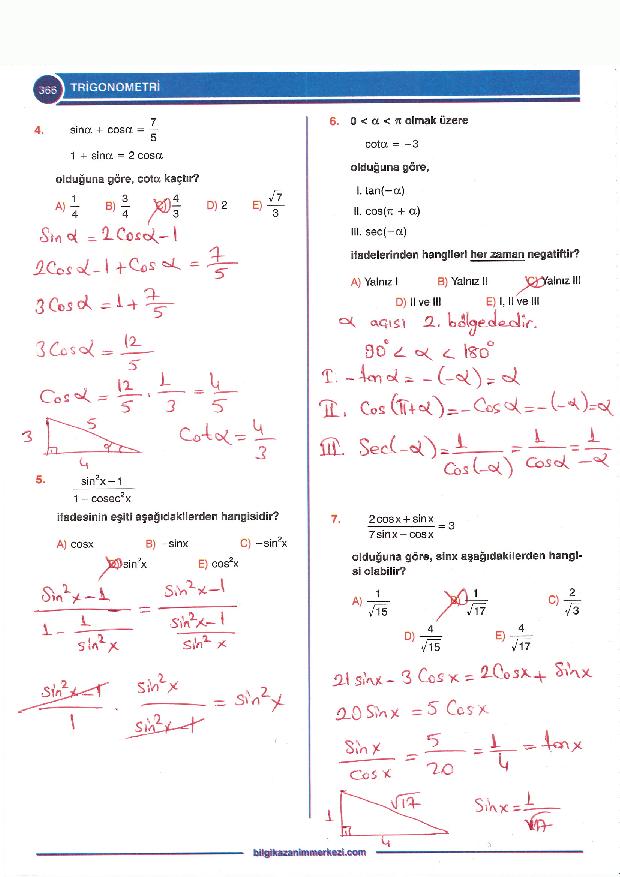 366 TRİGONOMETRİ
4. sinα + cosα = 7/5
1 + sinα = 2 cosα
olduğuna göre, cotα kaçtır?
A) 1/4 B) 3/4 C) 4/3 D) 2 E) √7/3
Sin α = 2Cosα-1
2Cosα-1+Cosα = 7/5
3Cosα = 1+7/5
3Cosα = 12/5
Cosα = 12/5 . 1/3 = 4/5
3 5 4 α
Cotα = 4/3
5. sin²x – 1 / 1 – cosec²x
ifadesinin eşiti aşağıdakilerden hangisidir?
A) cosx B) –sinx C) –sin²x
D) sin²x E) cos²x
Sin²x-1 / 1 - 1/sin²x = Sin²x-1 / Sin²x-1/Sin²x
Sin²x-1 / 1 . Sin²x / Sin²x-1 = Sin²x
6. 0 < α < π olmak üzere
cotα = –3
olduğuna göre,
I. tan(–α)
II. cos(π + α)
III. sec(–α)
ifadelerinden hangileri her zaman negatiftir?
A) Yalnız I B) Yalnız II C) Yalnız III
D) II ve III E) I, II ve III
α açısı 2. bölgededir.
90° < α < 180°
I. -tanα = -(-α) = α
II. Cos(π+α) = -Cosα = -(-α) = α
III. Sec(-α) = 1/Cos(-α) = 1/Cosα = 1/-α
7. 2cosx + sinx / 7sinx – cosx = 3
olduğuna göre, sinx aşağıdakilerden hangi-
si olabilir?
A) 1/√15 B) 1/√17 C) 2/√3
D) 4/√15 E) 4/√17
21sinx - 3Cosx = 2Cosx + Sinx
20Sinx = 5Cosx
Sinx/Cosx = 5/20 = 1/4 = tanx
1 √17 4
Sinx = 1/√17
bilgikazanimmerkezi.com